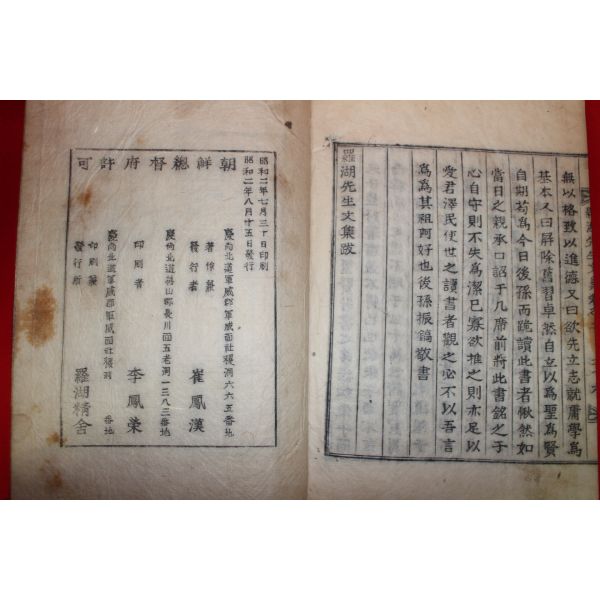 無以格致以進德又曰欲先立志就庸學爲
基本又曰屛除舊習卓然自立以爲聖爲賢
自期苟爲今日後孫而跪讀此書者愀然如
當日之親承口詔于几席前將此書銘之于
心自守則不失爲潔己寡欲推之則亦足以
愛君澤民使世之讀書者觀之必不以吾言
爲爲其祖阿好也後孫振鎬敬書
羅湖先生文集跋
昭和二年七月三十日印刷
昭和二年八月十五日發行
朝鮮總督府許可
慶尚北道軍威郡軍威面社稷洞六六五番地
著作兼
發行者 崔鳳漢
慶尚北道 山郡長川面五老洞一三八二番地
印刷者 李鳳榮
慶尚北道軍威郡軍威面社稷洞 番地
印刷兼
發行所 羅湖精舍